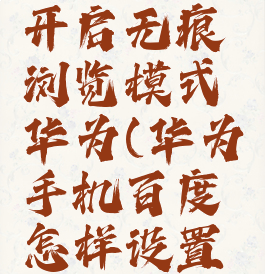 开启无痕
浏览模式
华为(华为
手机百度
怎样设置